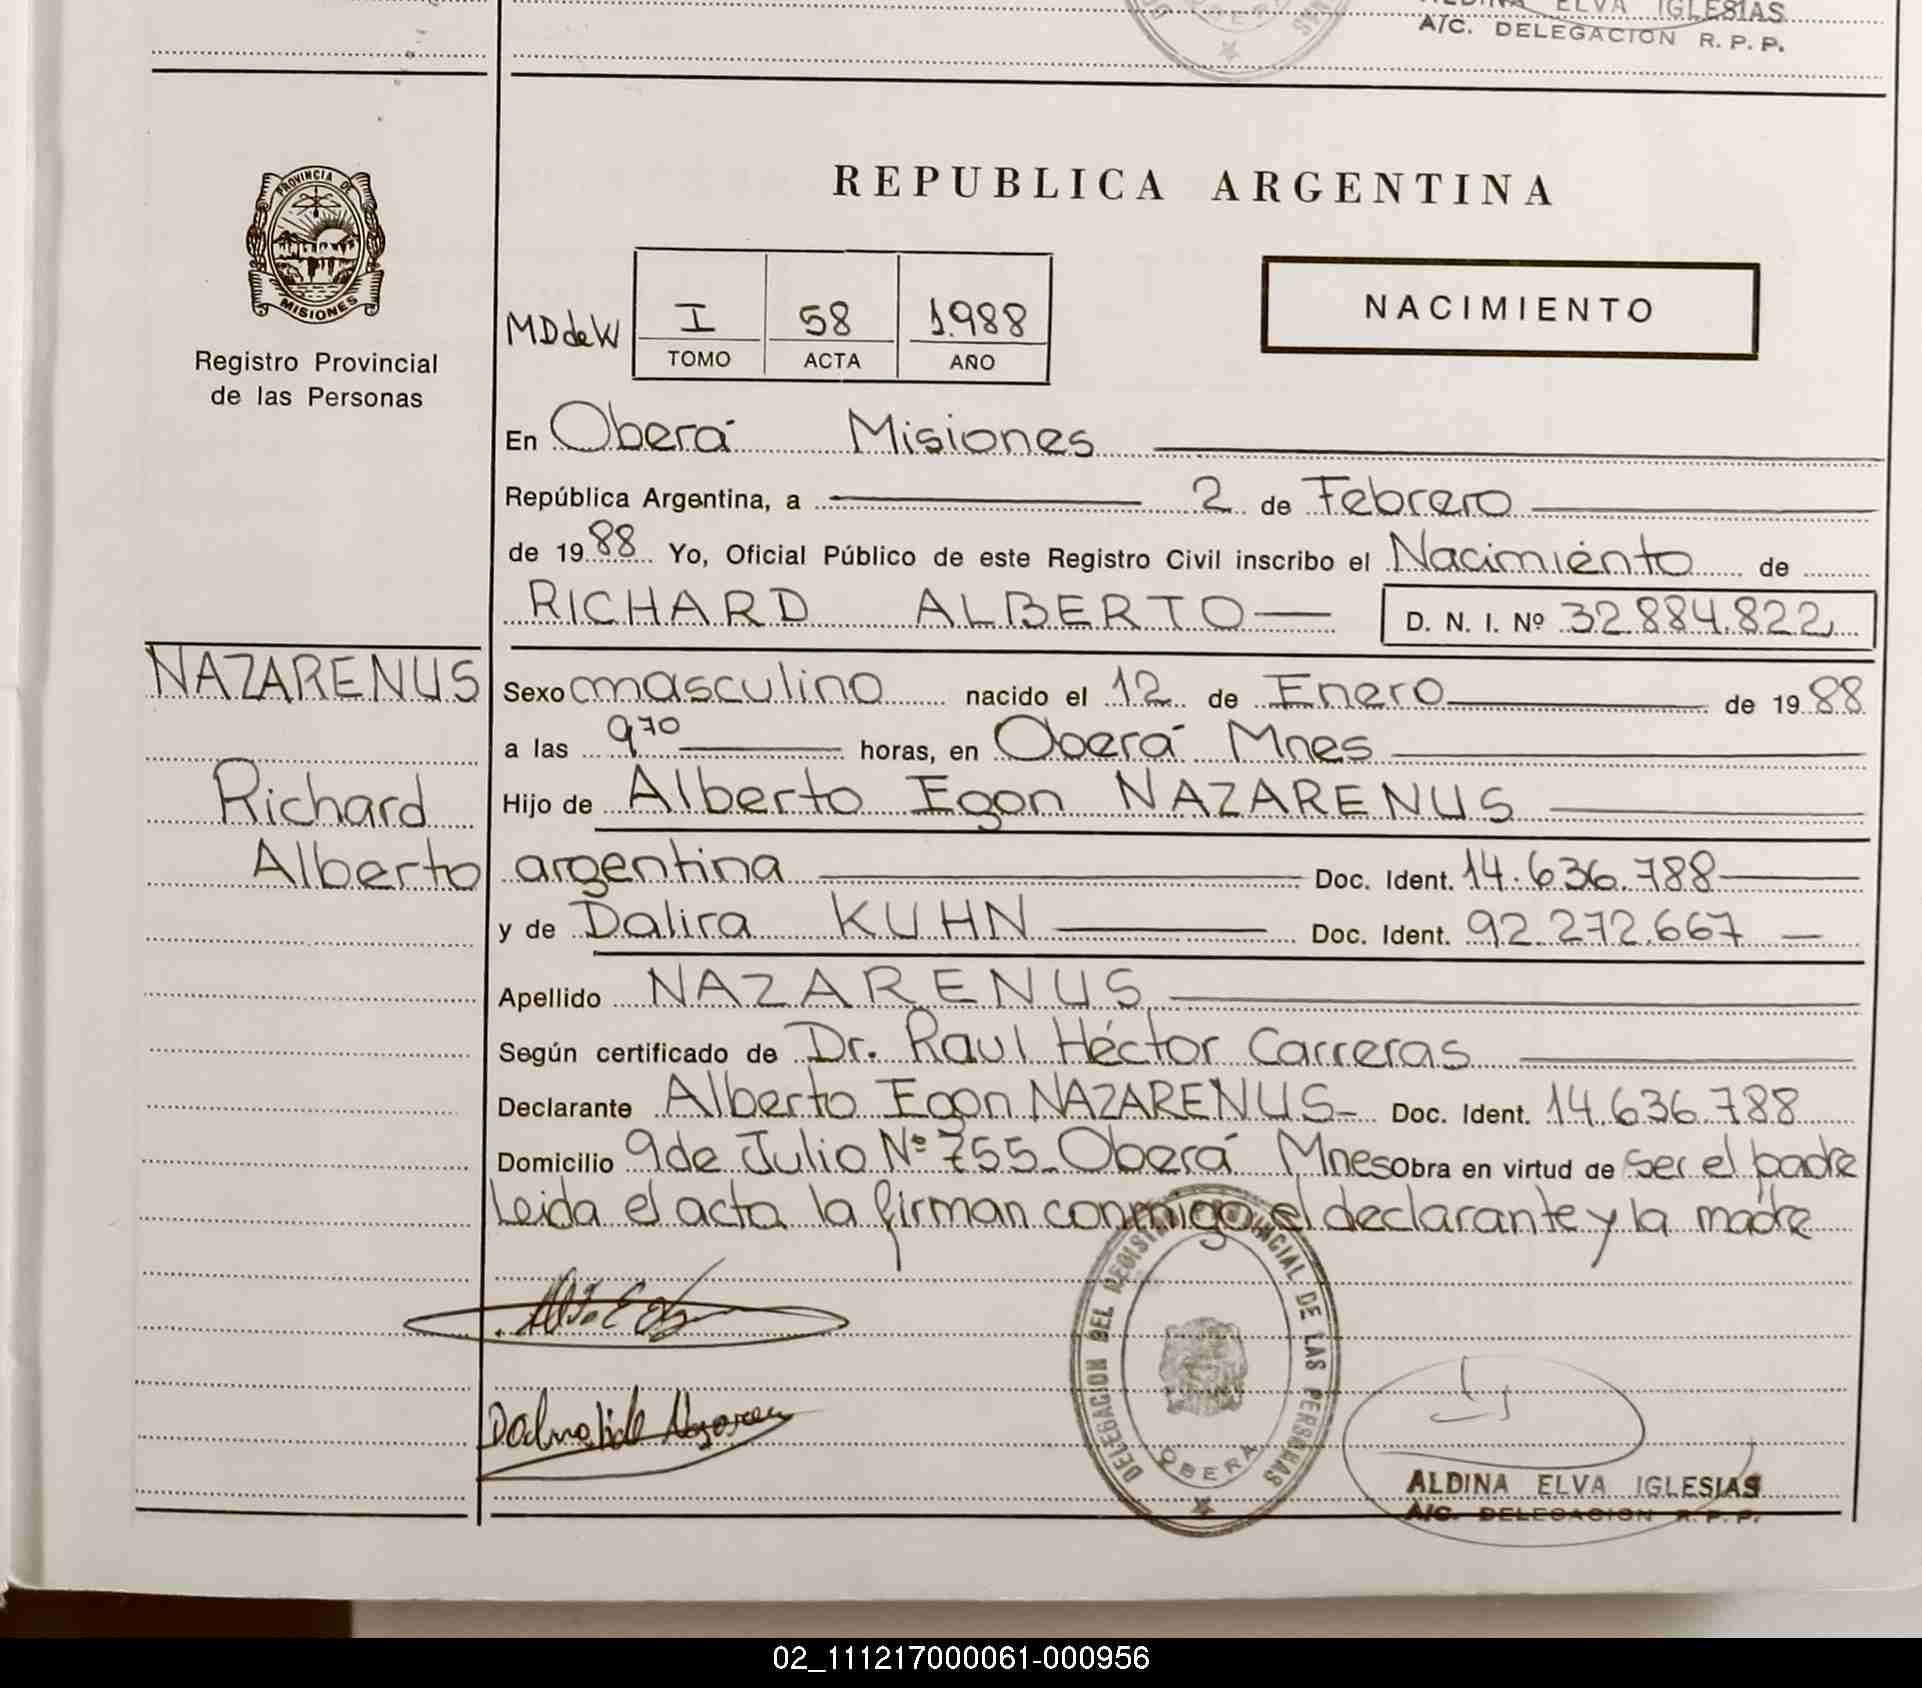 ELVA IGLESIAS
A/C. DELEGACION R. P. P.
PROVINCIA DE
MISIONES
Registro Provincial
de las Personas
REPUBLICA ARGENTINA
MD de W
I 58 1.988
TOMO ACTA AÑO
NACIMIENTO
En Oberá Misiones
República Argentina, a 2 de Febrero
de 1988 Yo, Oficial Público de este Registro Civil inscribo el Nacimiento de
RICHARD ALBERTO D. N. I. Nº 32.884.822
NAZARENUS
Richard
Alberto
Sexo masculino nacido el 12 de Enero de 1988
a las 9 horas, en Oberá Mnes
Hijo de Alberto Egon NAZARENUS
argentina Doc. Ident. 14.636.788
y de Dalira KUHN Doc. Ident. 92.272.667
Apellido NAZARENUS
Según certificado de Dr. Raul Héctor Carreras
Declarante Alberto Egon NAZARENUS Doc. Ident. 14.636.788
Domicilio 9 de Julio Nº 755 Oberá Mnes Obra en virtud de ser el padre
Leida el acta la firman conmigo el declarante y la madre
DELEGACION DEL REGISTRO PROVINCIAL DE LAS PERSONAS
OBERA
ALDINA ELVA IGLESIAS
A/C. DELEGACION R. P. P.
02_111217000061-000956